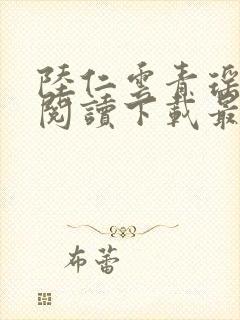 陸仁雲青瑶
閱讀下載最
布蕾